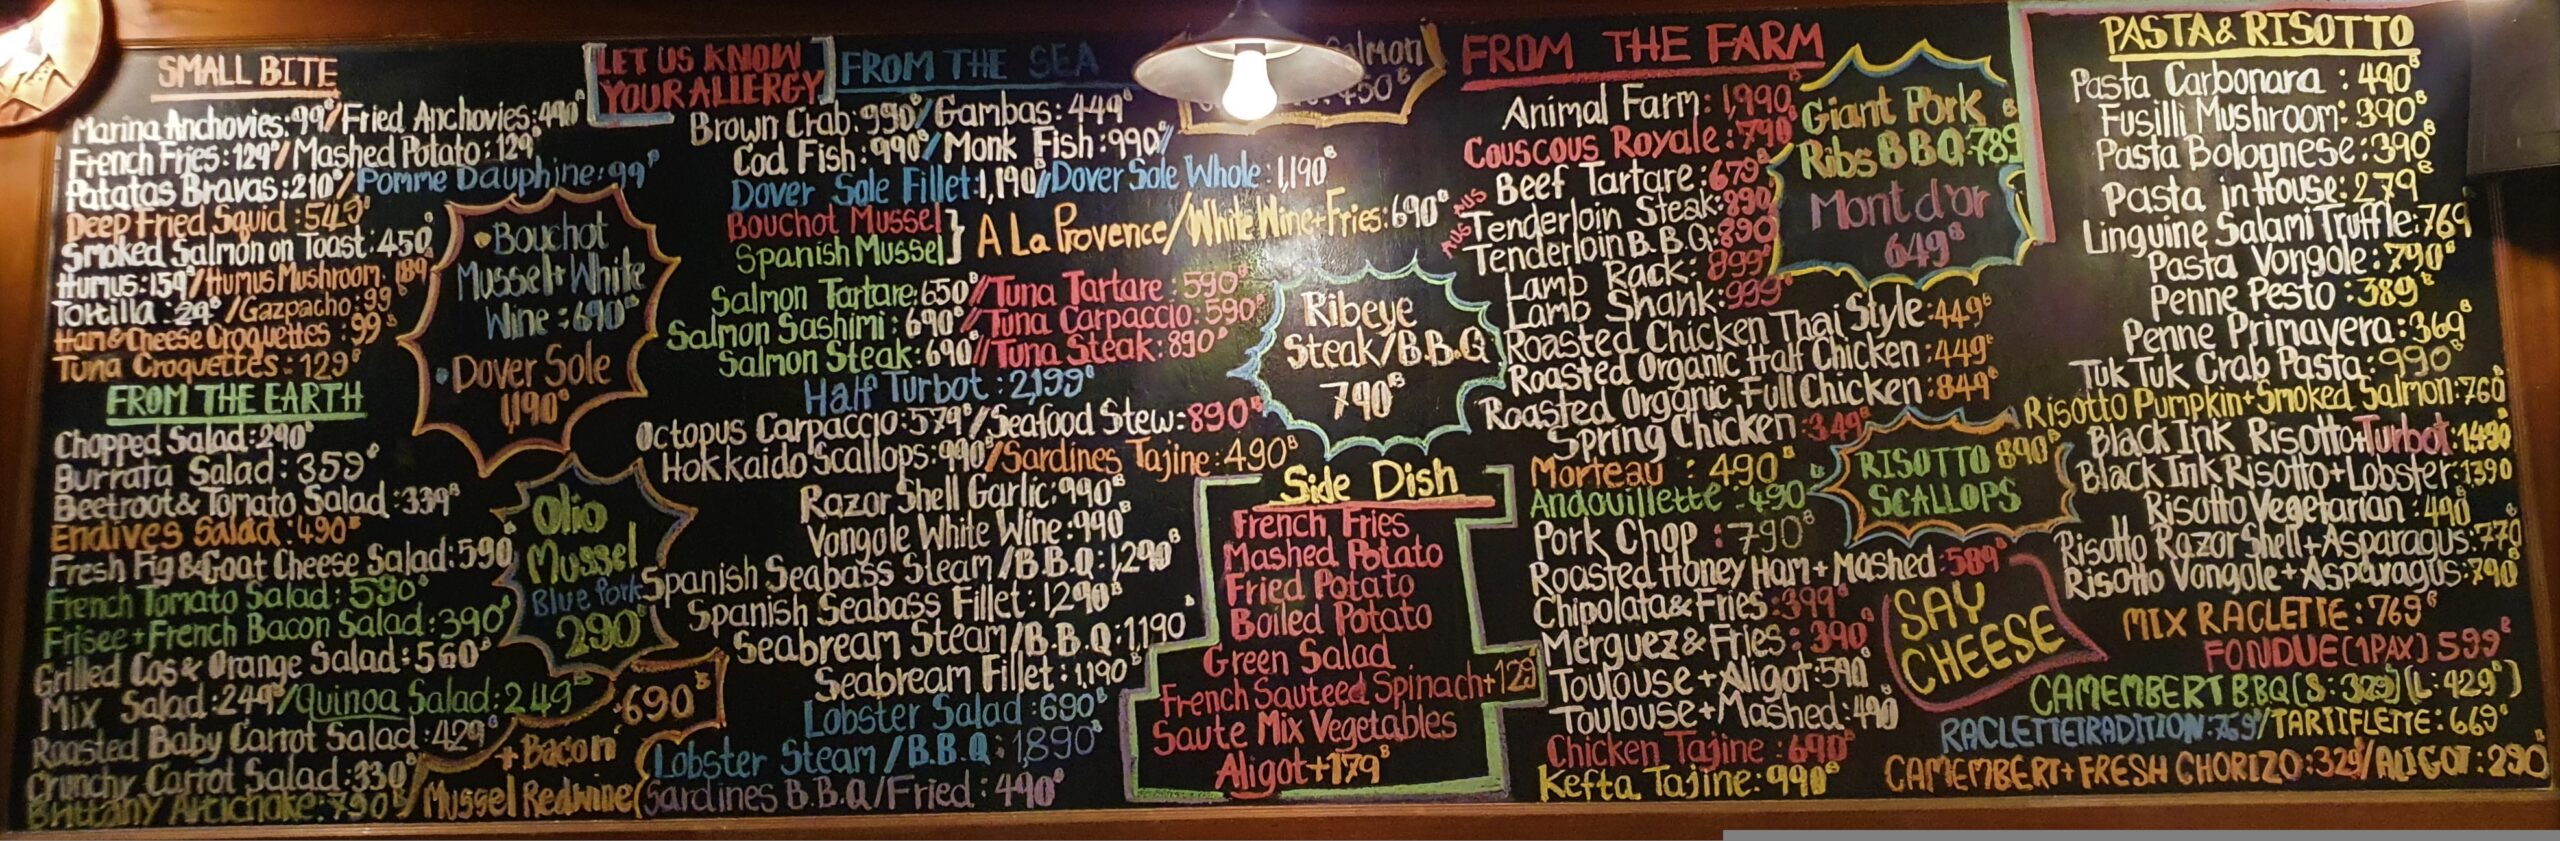 SMALL BITE
Marina Anchovies: 99฿/Fried Anchovies: 490฿
French Fries: 129฿/Mashed Potato: 129฿
Patatas Bravas: 210฿/Pomme Dauphine: 99฿
Deep Fried Squid: 549฿
Smoked Salmon on Toast: 450
Humus: 159฿/Humus Mushroom. 189
Tortilla: 29฿/Gazpacho: 99฿
Ham & Cheese Croquettes: 99฿
Tuna Croquettes: 129฿
FROM THE EARTH
Chopped Salad: 290฿
Burrata Salad: 359฿
Beetroot & Tomato Salad: 339฿
Endives Salad: 490฿
Fresh Fig & Goat Cheese Salad: 590
French Tomato Salad: 590฿
Frisee + French Bacon Salad: 390฿
Grilled Cos & Orange Salad: 560฿
Mix Salad: 249฿/Quinoa Salad: 249฿
Roasted Baby Carrot Salad: 429฿
Crunchy Carrot Salad: 330฿
Brittany Artichoke: 790฿
LET US KNOW
YOUR ALLERGY
• Bouchot
Mussel + White
Wine: 690฿
• Dover Sole
1,190฿
Olio
Mussel
Blue Pork
290฿
690฿
+ Bacon
Mussel Redwine
FROM THE SEA
Brown Crab: 990฿/Gambas: 449฿
Cod Fish: 990฿/Monk Fish: 990฿/
Dover Sole Fillet: 1,190//Dover Sole Whole: 1,190฿
Bouchot Mussel
Spanish Mussel } A La Provence/White Wine + Fries: 690฿
Salmon Tartare: 650฿//Tuna Tartare: 590฿
Salmon Sashimi: 690฿/Tuna Carpaccio: 590฿
Salmon Steak: 690//Tuna Steak: 890฿
Half Turbot: 2,199฿
Octopus Carpaccio: 579฿/Seafood Stew: 890฿
Hokkaido Scallops: 990฿/Sardines Tajine: 490฿
Razor Shell Garlic: 990฿
Vongole White Wine: 990฿
Spanish Seabass Steam/B.B.Q: 1,290฿
Spanish Seabass Fillet: 1290฿
Seabream Steam/B.B.Q: 1,190
Seabream Fillet: 1,190฿
Lobster Salad: 690฿
Lobster Steam/B.B.Q: 1,890฿
Sardines B.B.Q/Fried: 490฿
Salmon
450฿
Ribeye
Steak/B.B.Q
790฿
Side Dish
French Fries
Mashed Potato
Fried Potato
Boiled Potato
Green Salad
French Sauteed Spinach + 129
Saute Mix Vegetables
Aligot + 179฿
FROM THE FARM
Animal Farm: 1,990
Couscous Royale: 790฿
Beef Tartare: 679฿
AUS Tenderloin Steak: 890
AUS Tenderloin B.B.Q: 890
Lamb Rack: 899฿
Lamb Shank: 999฿
Roasted Chicken Thai Style: 449฿
Roasted Organic Half Chicken: 449฿
Roasted Organic Full Chicken: 849฿
Spring Chicken: 349฿
Morteau: 490฿
Andouillette: 490
Pork Chop: 790฿
Roasted Honey Ham + Mashed: 589฿
Chipolata & Fries: 399฿
Merguez & Fries: 390฿
Toulouse + Aligot: 590฿
Toulouse + Mashed: 490
Chicken Tajine: 690฿
Kefta Tajine: 990฿
Giant Pork
Ribs B B Q: 789฿
Mont d'or
649฿
RISOTTO 890฿
SCALLOPS
SAY
CHEESE
PASTA & RISOTTO
Pasta Carbonara: 490฿
Fusilli Mushroom: 390฿
Pasta Bolognese: 390฿
Pasta in House: 279฿
Linguine Salami Truffle: 769
Pasta Vongole: 790฿
Penne Pesto: 389฿
Penne Primavera: 369฿
Tuk Tuk Crab Pasta: 990฿
Risotto Pumpkin + Smoked Salmon: 760
Black Ink Risotto + Turbot: 1490
Black Ink Risotto + Lobster: 1390
Risotto Vegetarian: 490
Risotto Razor Shell + Asparagus: 770
Risotto Vongole + Asparagus: 790
MIX RACLETTE: 769฿
FONDUE (1PAX) 599฿
CAMEMBERT B.B.Q (S: 329) (L: 429฿)
RACLETTE TRADITION: 769/TARTIFLETTE: 669฿
CAMEMBERT + FRESH CHORIZO: 329/ALIGOT: 290฿